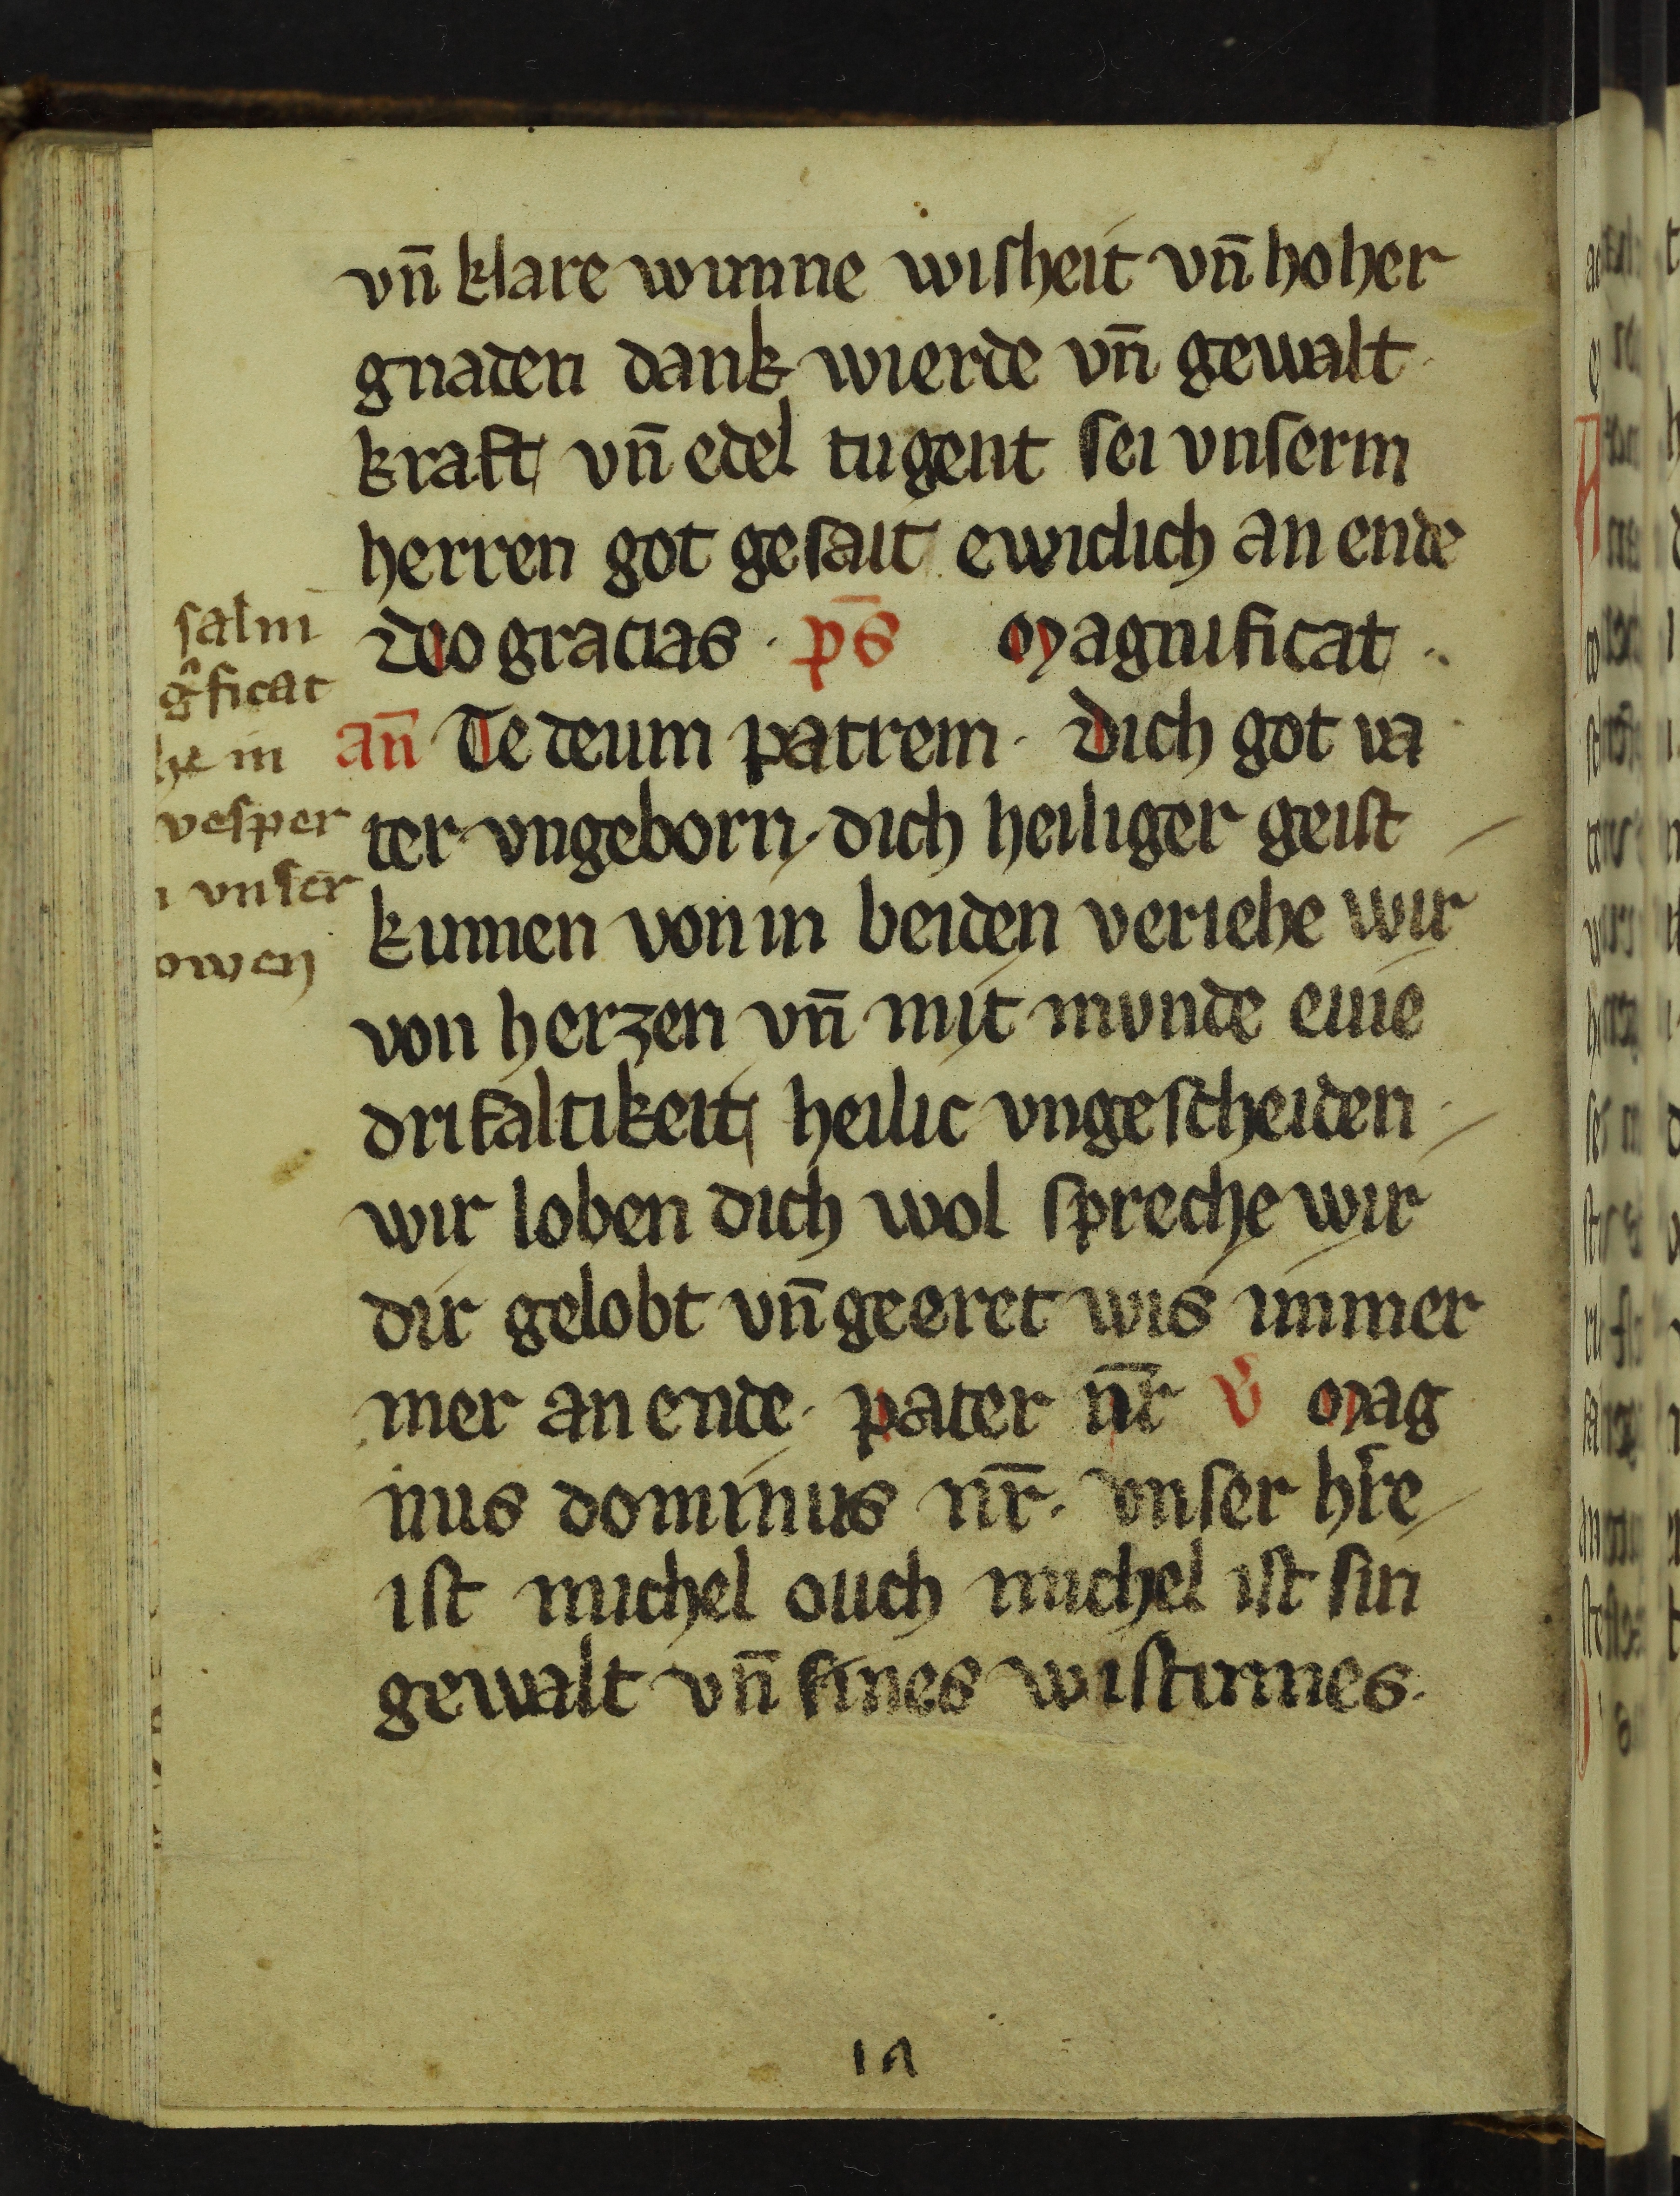 vn̄ klare wunne wisheit vn̄ hoher
gnaden dank wierde vn̄ gewalt
kraft vn̄ edel tugent sei vnserm
herren got gesait ewiclich an ende
deo gracias · p̄s Magnificat ·
an̄ Te deum patrem · Dich got va
ter vngeborn dich heiliger geist
kumen von in beiden veriehe wir
von herzen vn̄ mit munde eine
drifaltikeit heilic vngescheiden
wir loben dich wol spreche wir
dir gelobt vn̄ geeret wis immer
mer an ende · pater nr̄ v̄ Mag
nus dominus nr̄ · vnser hr̄e
ist michel ouch michel ist sin
gewalt vn̄ sines wistumes ·
salm
gͣficat
he in
vesper
vnser
owen